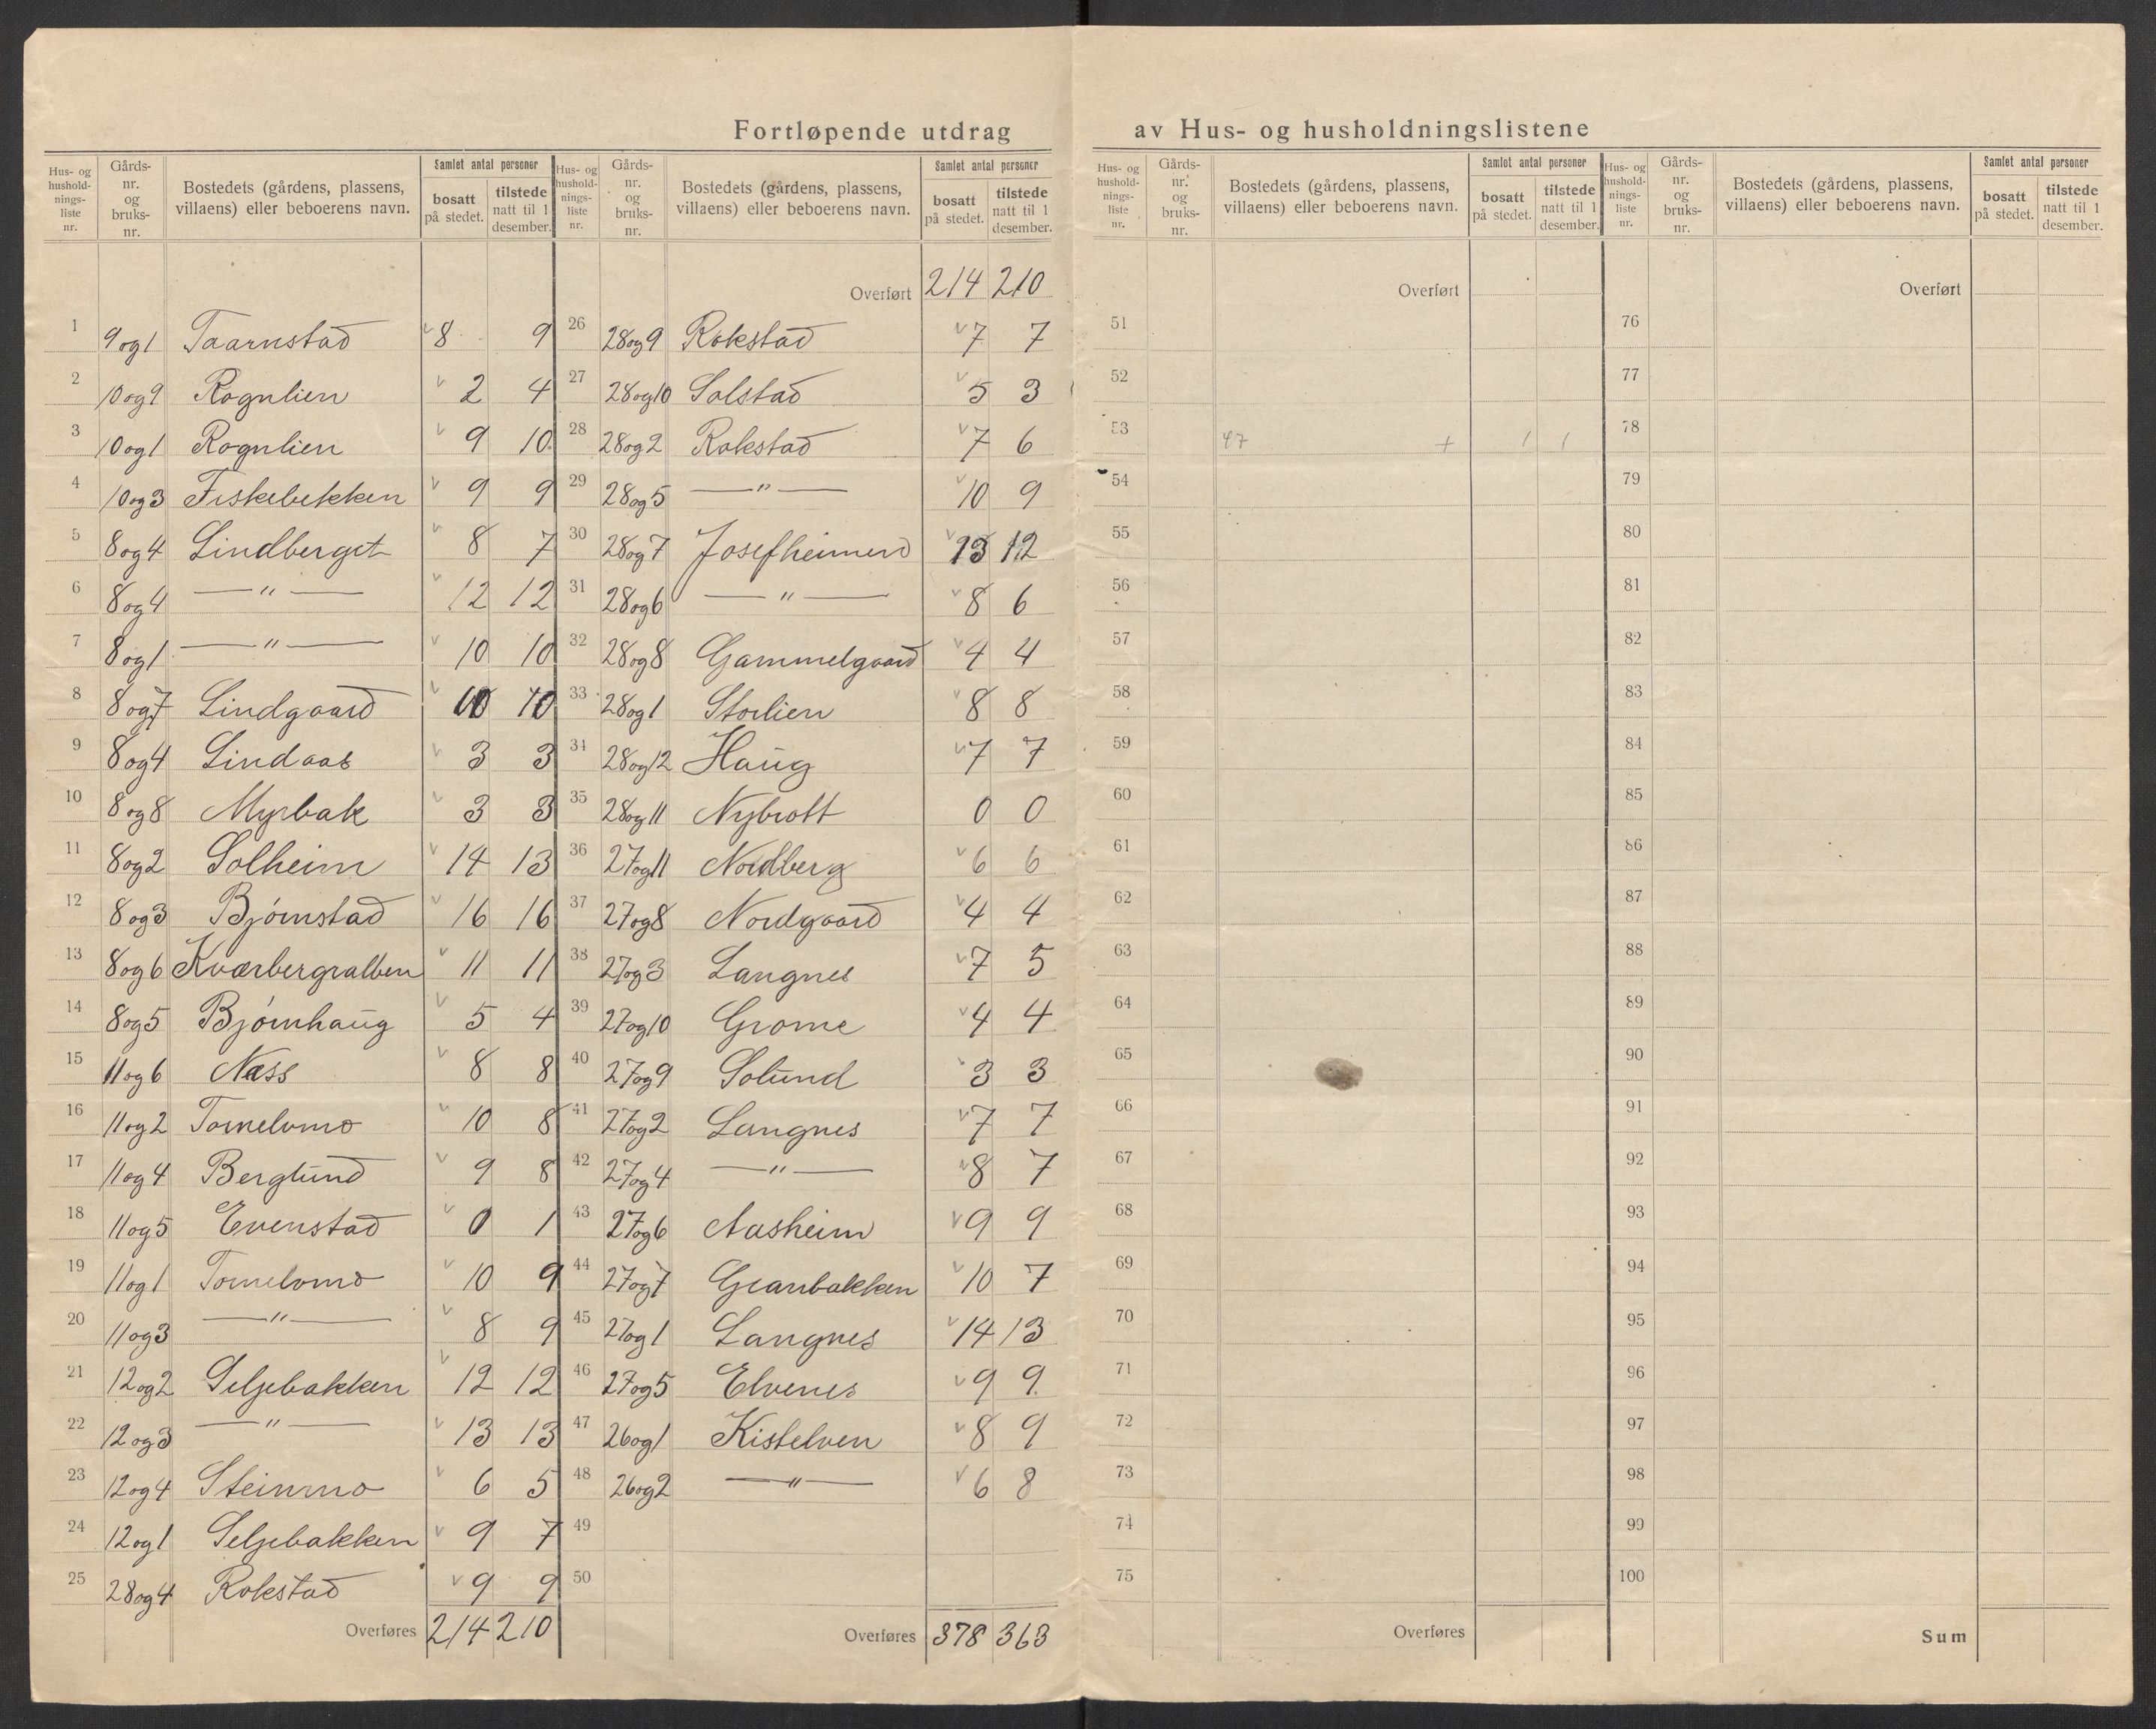 Fortløpende utdrag av Hus- og husholdningslistene
Hus- og hushold-nings-liste nr. | Gårds-nr. og bruks-nr. | Bostedets (gårdens, plassens, villaens) eller beboerens navn. | Samlet antal personer | bosatt på stedet. | tilstede natt til 1 desember.
1 9og1 Taarnstad v 8 9
2 10og9 Rognlien v 2 4
3 10og1 Rognlien v 9 10
4 10og3 Fiskebekken v 9 9
5 8og4 Lindberget v 8 7
6 8og4 —"— v 12 12
7 8og1 —"— v 10 10
8 8og7 Lindgaard v 10 10
9 8og4 Lindaas v 3 3
10 8og8 Myrbak v 3 3
11 8og2 Solheim v 14 13
12 8og3 Bjørnstad v 16 16
13 8og6 v 11 11
14 8og5 Bjørnhaug v 5 4
15 11og6 Næss v 8 8
16 11og2 v 10 8
17 11og4 Berglund v 9 8
18 11og5 Evenstad v 0 1
19 11og1 v 10 9
20 11og3 —"— v 8 9
21 12og2 Seljebakken v 12 12
22 12og3 —"— v 13 13
23 12og4 Steinmo v 6 5
24 12og1 Seljebakken v 9 7
25 28og4 Rokstad v 9 9
Overføres 214 210
Hus- og hushold-nings-liste nr. | Gårds-nr. og bruks-nr. | Bostedets (gårdens, plassens, villaens) eller beboerens navn. | Samlet antal personer | bosatt på stedet. | tilstede natt til 1 desember.
Overført 214 210
26 28og9 Rokstad v 7 7
27 28og10 Solstad v 5 3
28 28og2 Rokstad v 7 6
29 28og5 —"— v 10 9
30 28og7 v 13 12
31 28og6 —"— v 8 6
32 28og8 Gammelgaard v 4 4
33 28og1 Storlien v 8 8
34 28og12 Haug v 7 7
35 28og11 Nybrott 0 0
36 27og11 Nordberg v 6 6
37 27og8 Nordgaard v 4 4
38 27og3 Langnes v 7 5
39 27og10 Grome v 4 4
40 27og9 Solund v 3 3
41 27og2 Langnes v 7 7
42 27og4 —"— v 8 7
43 27og6 Aasheim v 9 9
44 27og7 Granbakken v 10 7
45 27og1 Langnes v 14 13
46 27og5 Elvenes v 9 9
47 26og1 Kistelven v 8 9
48 26og2 —"— v 6 8
49
50
Overføres 378 363
Hus- og hushold-nings-liste nr. | Gårds-nr. og bruks-nr. | Bostedets (gårdens, plassens, villaens) eller beboerens navn. | Samlet antal personer | bosatt på stedet. | tilstede natt til 1 desember.
Overført
51
52
53 47 + 1 1
54
55
56
57
58
59
60
61
62
63
64
65
66
67
68
69
70
71
72
73
74
75
Overføres
Hus- og hushold-nings-liste nr. | Gårds-nr. og bruks-nr. | Bostedets (gårdens, plassens, villaens) eller beboerens navn. | Samlet antal personer | bosatt på stedet. | tilstede natt til 1 desember.
Overført
76
77
78
79
80
81
82
83
84
85
86
87
88
89
90
91
92
93
94
95
96
97
98
99
100
Sum